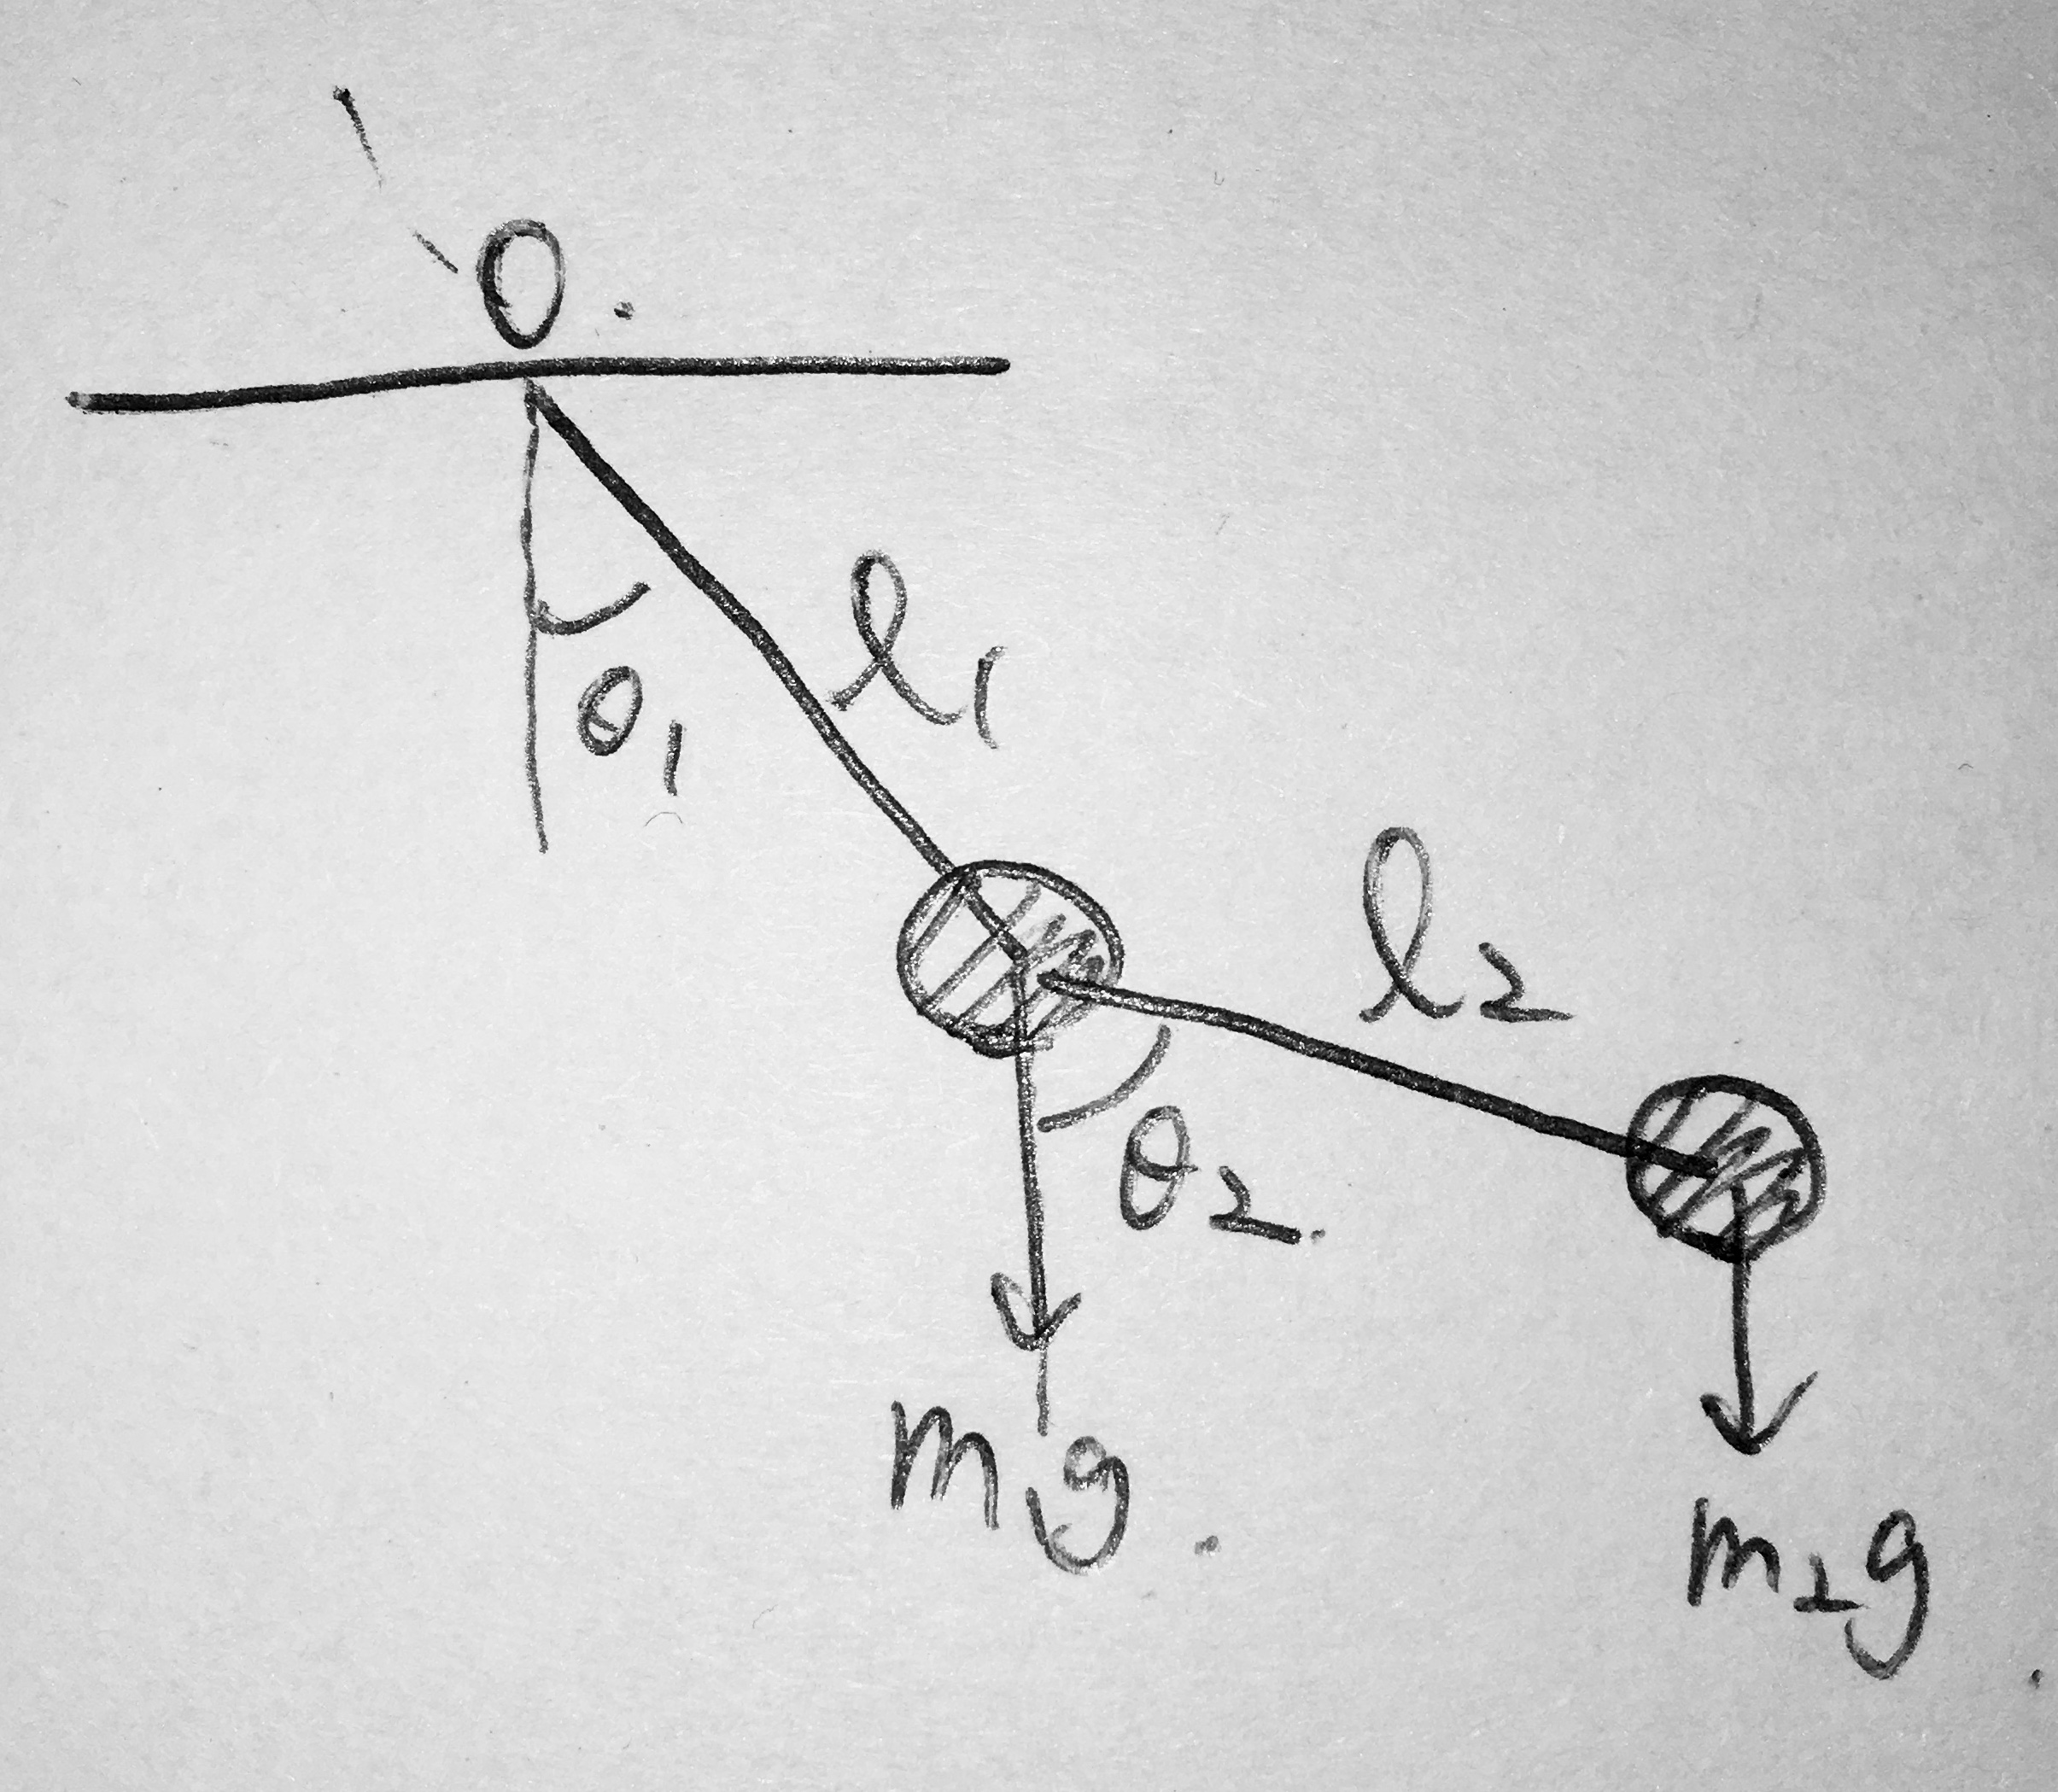 O.
θ₁
l₁
l₂
θ₂.
m₁g.
m₂g